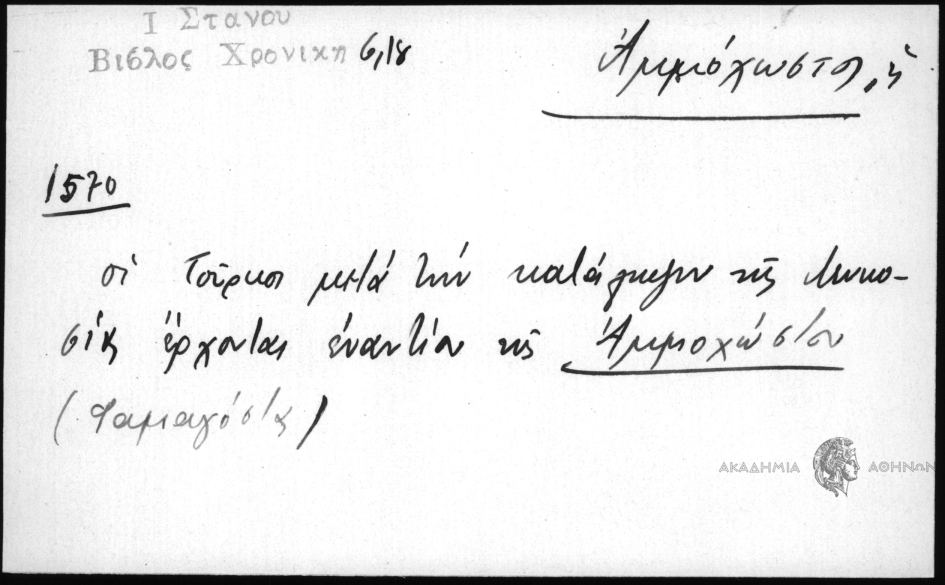 Ι Στανου
Βιβλος Χρονικη 6,18
Ἀμμόχωστος, ἡ
1570
οἱ Τοῦρκοι μετά τήν κατάληψιν τῆς Λευκο-
σίας ἔρχονται ἐναντίον τῆς Ἀμμοχώστου
(Φαμαγόστας)
ΑΚΑΔΗΜΙΑ ΑΘΗΝΩΝ